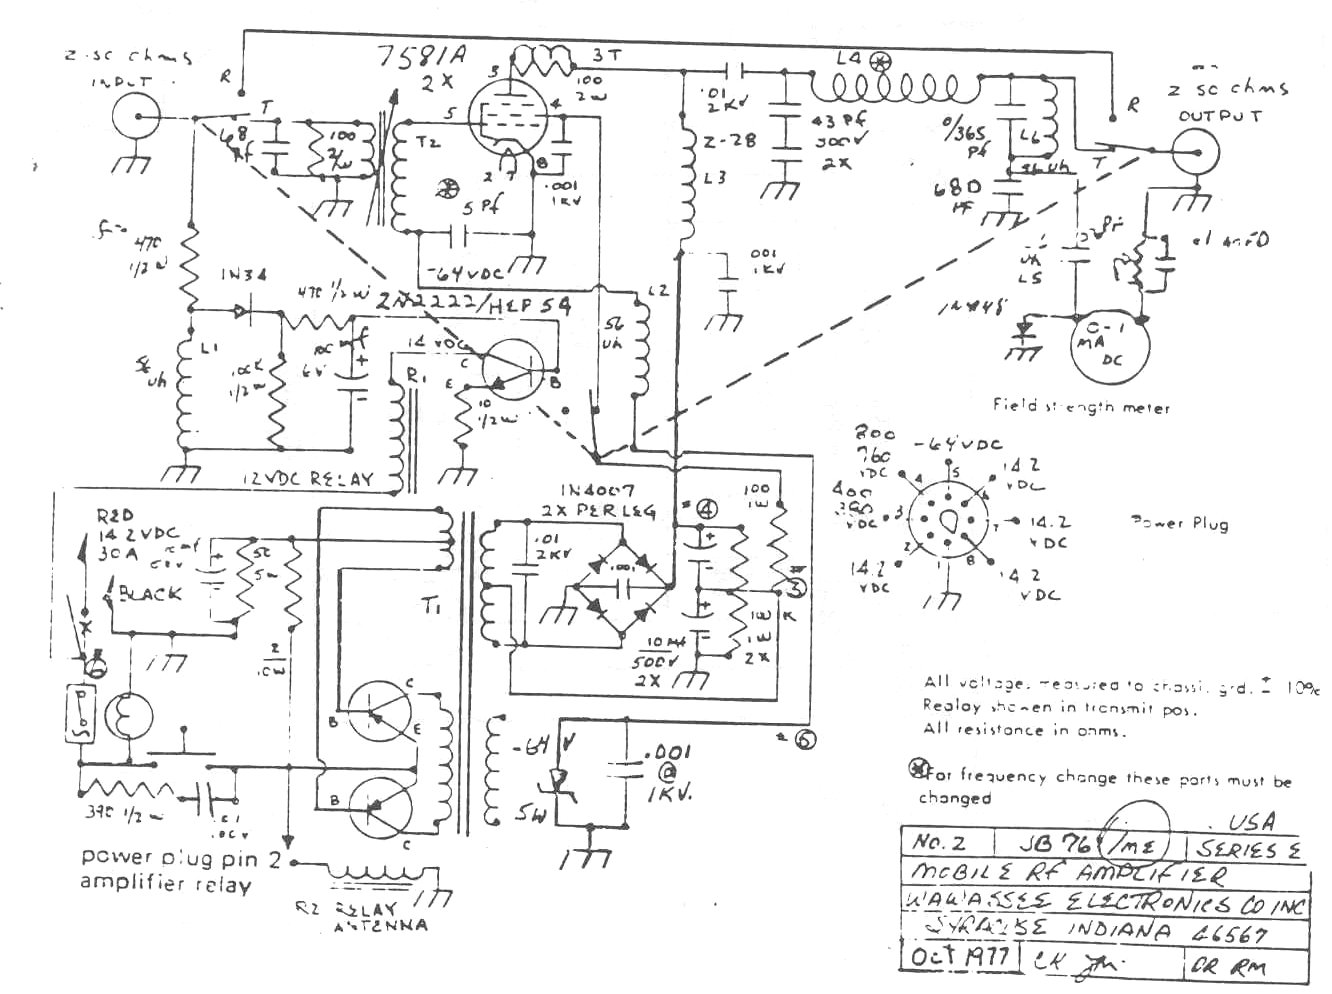 2 50 ohms
INPUT
R
T
68
pf
100
2W
7581A
2X
3
5
4
2
7
8
3T
100
2W
T2
5 Pf
.001
1KV
-64VDC
.01
2KV
L4
43 Pf
500V
2X
Z-28
L3
.001
1KV
0/365
Pf
L6
56 uh
680
Pf
R
T
2 50 ohms
OUTPUT
.1 mfD
uh
L5
0-1
MA
DC
Field strength meter
470
1/2 W
1N34
470 1/2 W
2N2222/HEP 54
L1
56
uh
100K
1/2 W
6V
14 VDC
R1
C
E
B
10
1/2 W
12VDC RELAY
L2
56
uh
1N4007
2X PER LEG
.01
2KV
.001
#4
100
1W
#3
10 Mf
500V
2X
2X
RED
14.2 VDC
30A
BLACK
50
5W
2
#6
T1
B
C
E
B
C
390 1/2 W
.01
power plug pin 2
amplifier relay
R2 RELAY
ANTENNA
-64 V
5W
.001
@
1KV.
#5
800
760
VDC
-64VDC
14.2
VDC
400
380
VDC
14.2
VDC
14.2
VDC
14.2
VDC
1
2
3
4
5
6
7
8
Power Plug
All voltage, measured to chassi, grd. ± 10%
Realay showen in transmit pos.
All resistance in ohms.
For frequency change these parts must be
changed
USA
NO. 2 JB 76 /ME SERIES E
MOBILE RF AMPLIFIER
WAWASSEE ELECTRONICS CO INC
SYRACUSE INDIANA 46567
Oct 1977 CK DR RM